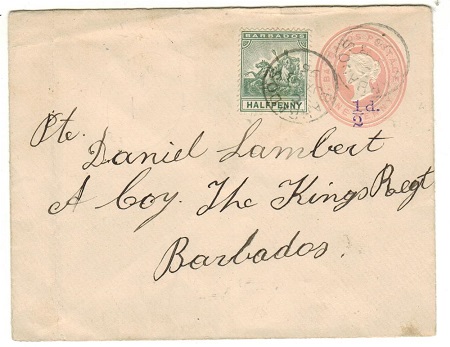 BARBADOS
HALFPENNY
½d.
Pte.
Daniel Lambert
A Coy. The Kings Regt
Barbados.